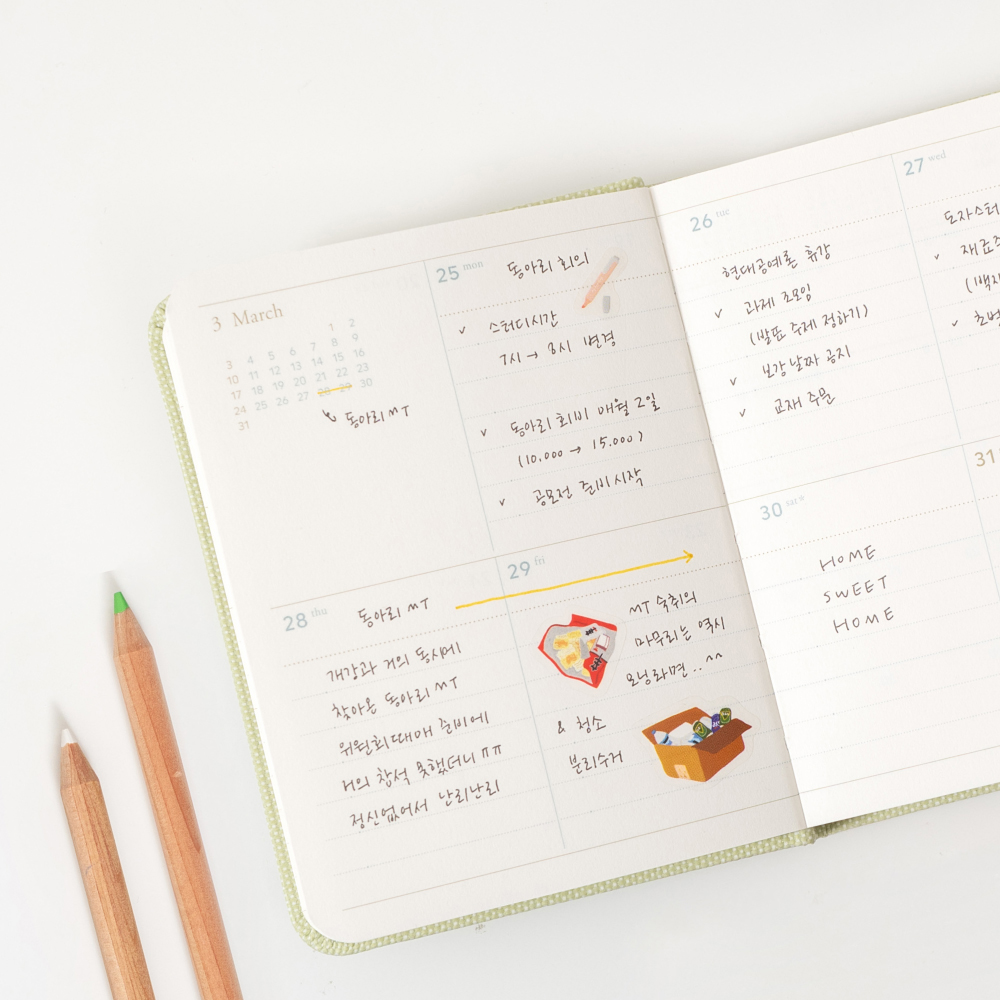 3 March
1 2
3 4 5 6 7 8 9
10 11 12 13 14 15 16
17 18 19 20 21 22 23
24 25 26 27 28 29 30
31
동아리 MT
25 mon
동아리 회의
v 스터디시간
7시 → 8시 변경
v 동아리 회비 매월 2일
(10.000 → 15.000)
v 공모전 준비시작
28 thu
동아리 MT
개강과 거의 동시에
찾아온 동아리 MT
위원회때매 준비에
거의 참석 못했더니 ㅠㅠ
정신없어서 난리난리
29 fri
MT 숙취의
마무리는 역시
모닝라면..^^
& 청소
분리수거
26 tue
현대공예론 휴강
v 과제 조모임
(발표 주제 정하기)
v 보강날짜 공지
v 교재 주문
27 wed
도자스터
v
(백자
v 초벌
30 sat
HOME
SWEET
HOME
31